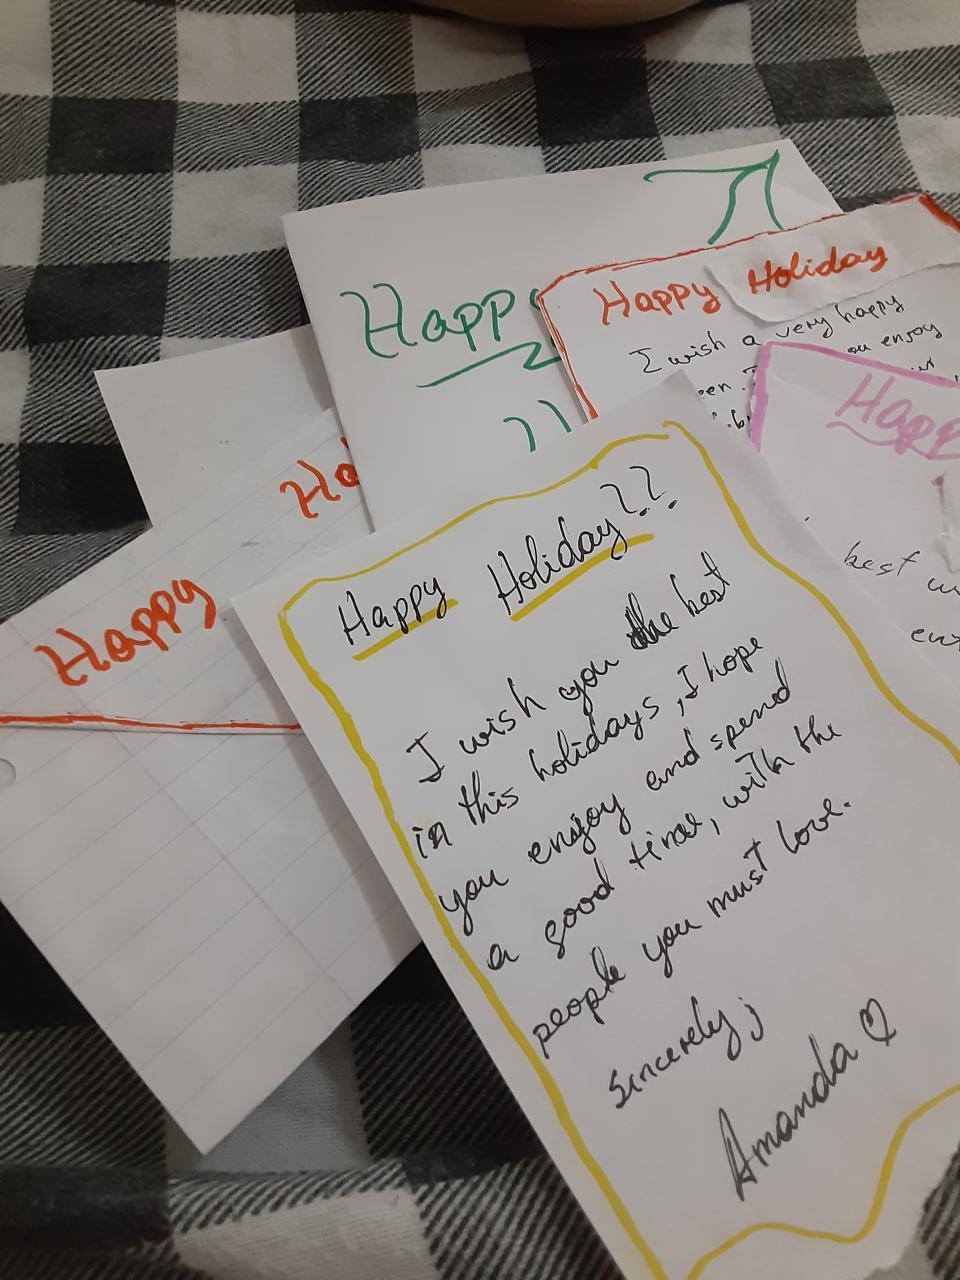 Happy
Happy Holiday
I wish a very happy
you enjoy
Happy
best
Happy
Happy Holiday??
I wish you the best
in this holidays, I hope
you enjoy and spend
a good time, with the
people you must love.
Sincerely;
Amanda ♡